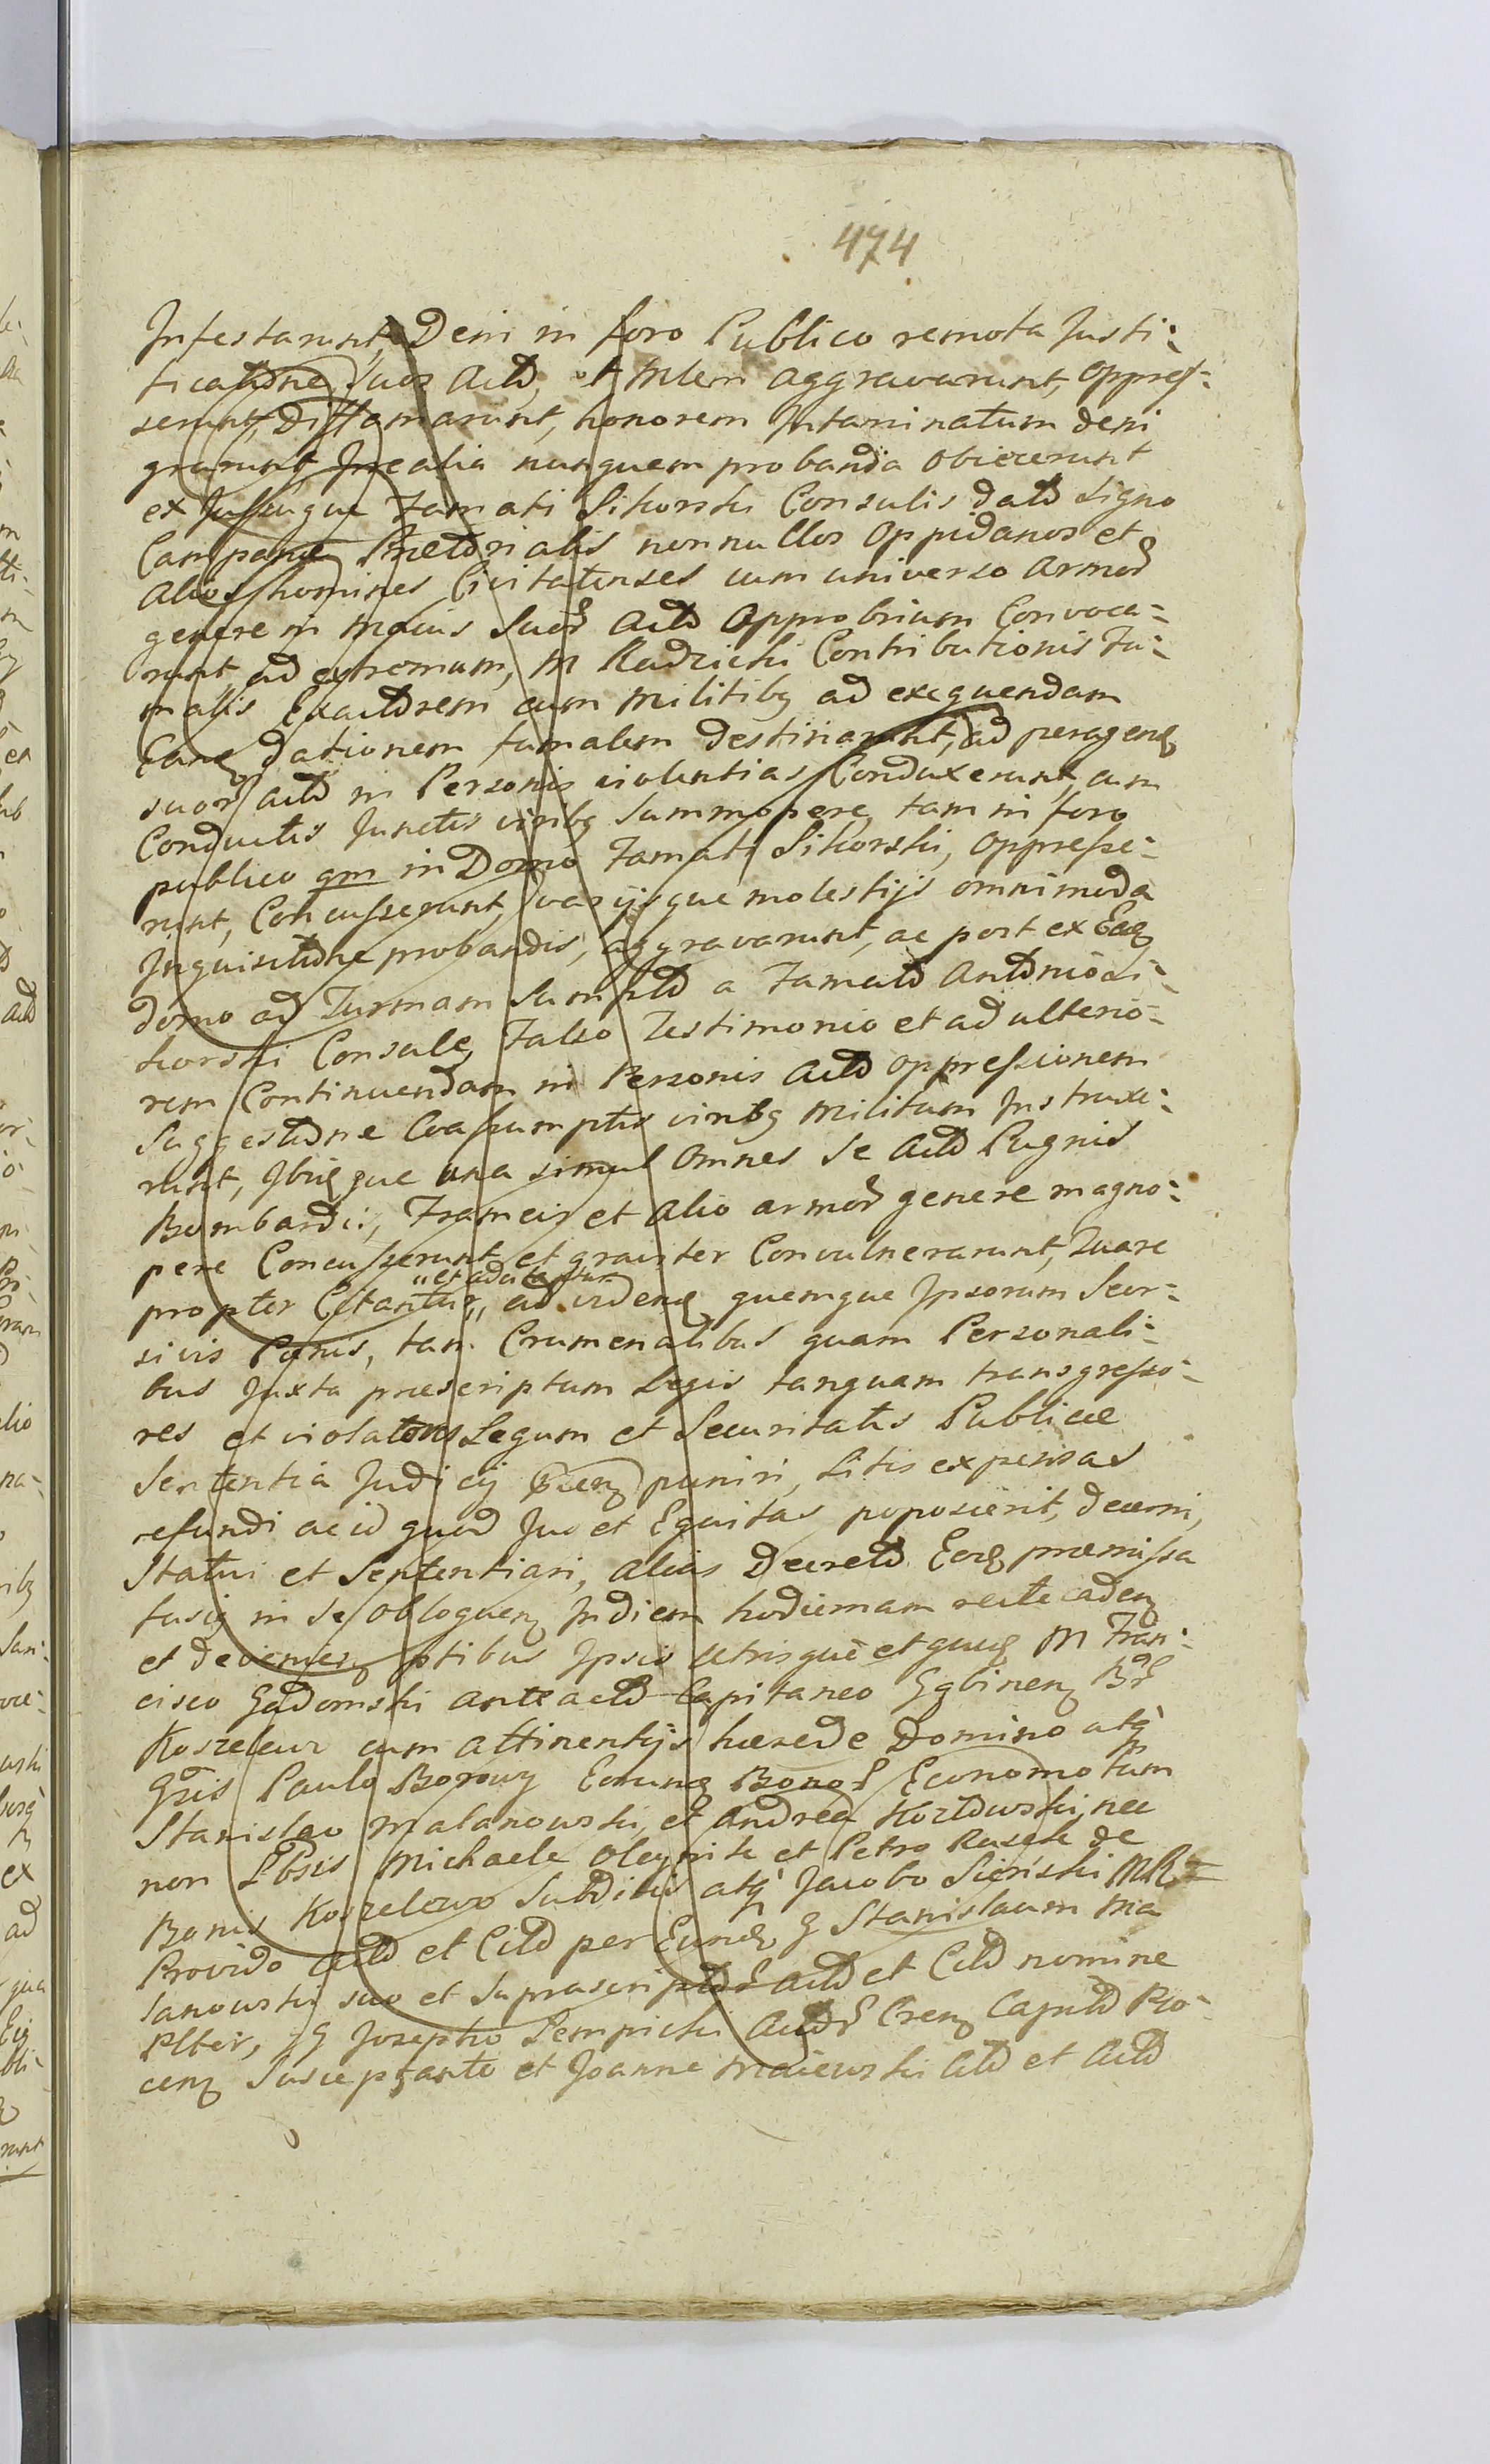 474
Infestarunt, Dein in foro Publico remota Justi:
ficatione suos Acto, et Mlem aggravarunt, oppres:
serunt, Diffamarunt, honorem Intaminatum deni
grarunt, Irrealia nunquam probanda obiecerunt
ex Jussuque Famati Sikorski Consulis dato signo
Campanæ Prætorialis nonnullos Oppidanos et
Alios homines Civitatenses cum universo armor
genere in maius Suor Acto Opprobrium Convoca:
runt ad extremum, M Radzicki Contributionis Fu:
malis Exactorem cum Militibq ad exequendam
Eanq dationem fumalem destinarunt, ad peragenq
suor acto in Personis violentias Conduxerunt, cum
Conductis Junctis viribq Summopere, tam in foro
publico qm in Domo Famati Sikorski, oppresse:
runt, Concusserunt, varijsque molestijs omnimoda
Inquisitione probandis, aggravarunt, ac post ex Eaq
domo ad Turmam Sumpto a Famato Antonio Si:
korski Consule, Falso Testimonio et ad ulterio:
rem Continuendam in Personis Acto oppressionem
Suggestione Coassumptis viribq Militum Instruxe:
runt, Ibiqque una simul Omnes Se Acto Pugnis
Bombardis, Frameis et Alio armor genere magno:
pere Concusserunt et graviter Convulnerarunt, Quare
propter Citantur, "et adcitantur" ad videnq quemque Ipsorum Seor:
sivis Pœnis, tam Crumenalibus quam Personali:
bus Juxta præscriptum Legis tanquam transgresso:
res et violatores Legum et Securitatis Publicæ
Sententia Judicij puniri, Litis expensas
refundi ac id quod Jus et Equitas poposcerit, decerni,
Statui et Sententiari, alias Decreto Eorq præmissa
fusiq in se obloquenq In diem hodiernam recte cadenq
et devenienq ptibus Ipsis utrisque et quidq M Fran:
cisco Gadomski ante acto Capitaneo Gąbinenq Br
Koszelew cum attinentijs hærede Domino atq
Gsis Paulo Borowy Eorunq Bonor Economo tum
Stanislao Malanowski, et Andrea Kozłowski, nec
non Lbsis Michaele Oleynik et Petro Rusek de
Bonis Koszelewo Subditis atq Jacobo Sieński
Provido Acto et Cito per Eunq G Stanislaum Ma
lanowski suo et Suprascriptor Acto et Cito nomine
Plter, G Josepho Lempicki Actor Crenq Caputo Pro:
cenq Susceptante et Joanne Maiewski Cito et Acto